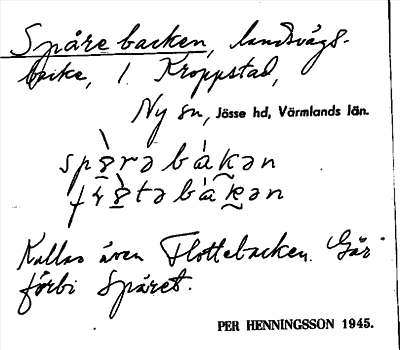 Spårebacken, landsvägs-
backe, i Kroppstad,
Ny sn, Jösse hd, Värmlands län.
Kallas även Flottebacken. Går
förbi Spåret.
PER HENNINGSSON 1945.